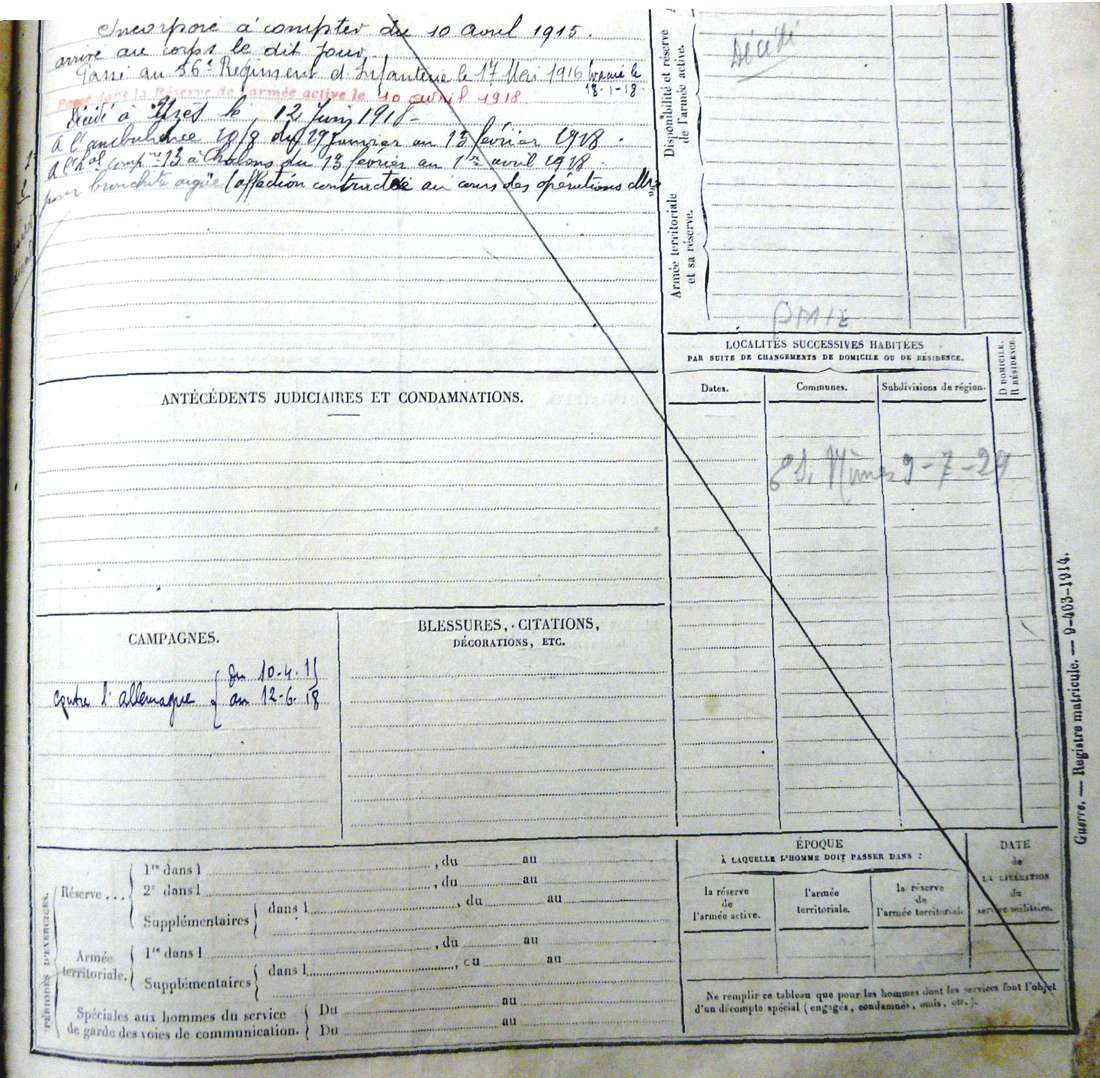 Incorporé à compter du 10 avril 1915.
arrivé au corps le dit jour
Passé au 56e Régiment d'Infanterie le 17 Mai 1916
18-1-18
Passé dans la Réserve de l'armée active le 10 avril 1918
Décédé à Uzès le 12 Juin 1918
A l'ambulance 10/8 du 29 Janvier au 13 février 1918.
à Chalons du 13 février au 1er avril 1918
pour bronchite aigüe (affection contractée au cours des opérations
Disponibilité et réserve
de l'armée active.
Décédé
Armée territoriale
et sa réserve.
LOCALITÉS SUCCESSIVES HABITÉES
PAR SUITE DE CHANGEMENTS DE DOMICILE OU DE RÉSIDENCE.
Dates.
Communes.
Subdivisions de région.
D DOMICILE.
R RÉSIDENCE.
Nîmes 9-7-29
ANTÉCÉDENTS JUDICIAIRES ET CONDAMNATIONS.
CAMPAGNES.
contre l'allemagne
du 10-4-15
au 12-6-18
BLESSURES, CITATIONS,
DÉCORATIONS, ETC.
PÉRIODES D'EXERCICES.
Réserve ...
1re dans l , du au
2e dans l , du au
Supplémentaires dans l , du au
Armée
territoriale.
1re dans l , du au
Supplémentaires dans l , du au
au
Spéciales aux hommes du service
de garde des voies de communication.
Du au
Du
ÉPOQUE
À LAQUELLE L'HOMME DOIT PASSER DANS :
la réserve
de
l'armée active.
l'armée
territoriale.
la réserve
de
l'armée territoriale
DATE
de
LA LIBÉRATION
du
service militaire.
Ne remplir ce tableau que pour les hommes dont les services font l'objet
d'un décompte spécial (engagés, condamnés, omis, etc.).
Guerre. — Registre matricule. — 9-403-1914.